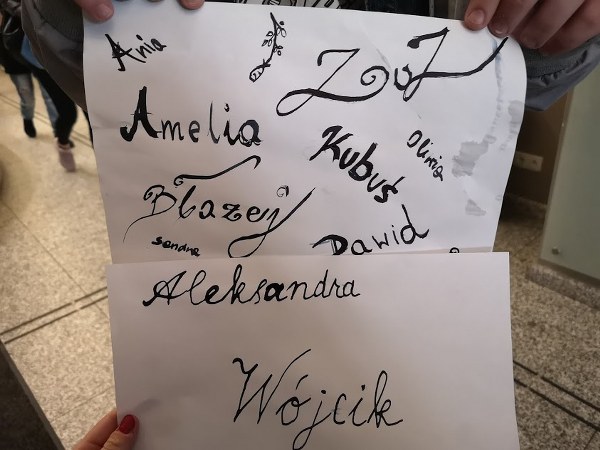 Ania
ZuZ
Amelia
Kubuś
Oliwia
Błażej
Sandra
Dawid
Aleksandra
Wójcik